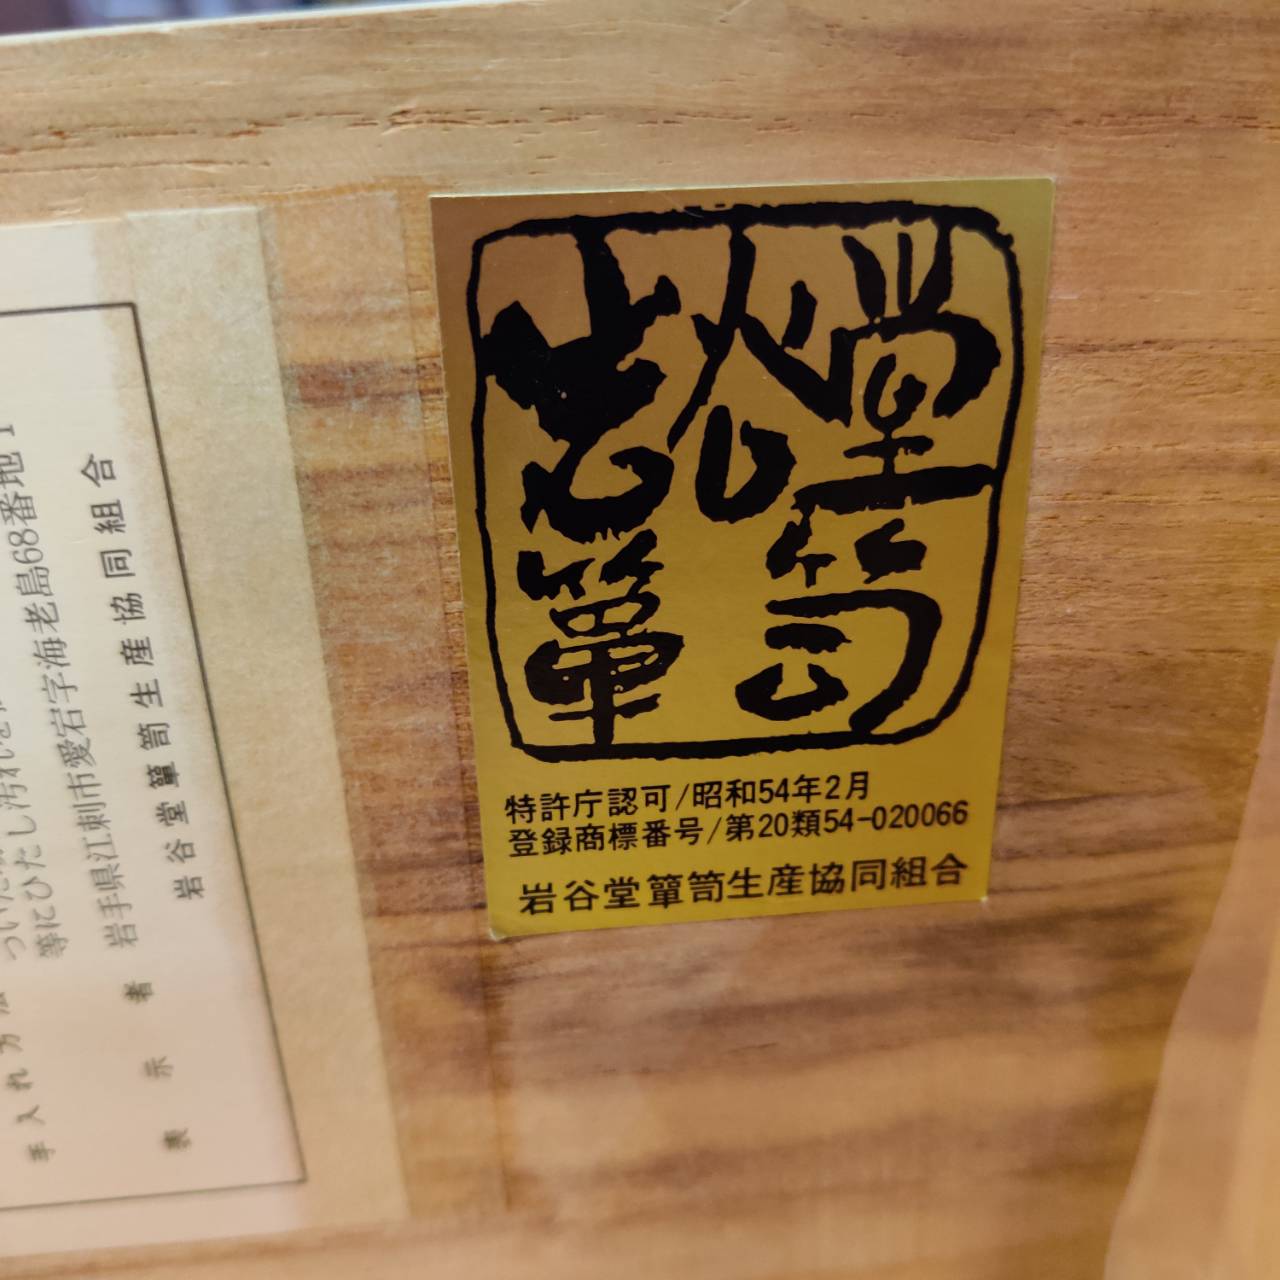 岩谷堂
箪笥
特許庁認可/昭和54年2月
登録商標番号/第20類54-020066
岩谷堂簞笥生産協同組合
等にひたし汚れを
手入れ方法
表示者 岩手県江刺市愛宕字海老島68番地1
岩谷堂簞笥生産協同組合